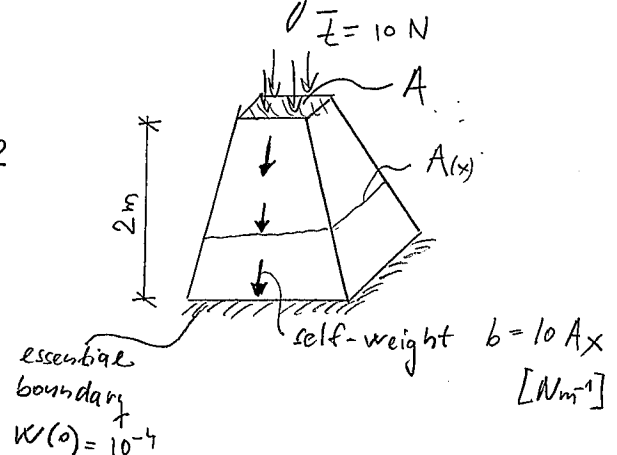 t̄ = 10 N
A
A(x)
2
2m
self-weight b = 10 Ax
[Nm⁻¹]
essential
boundary
W(0) = 10⁻⁴